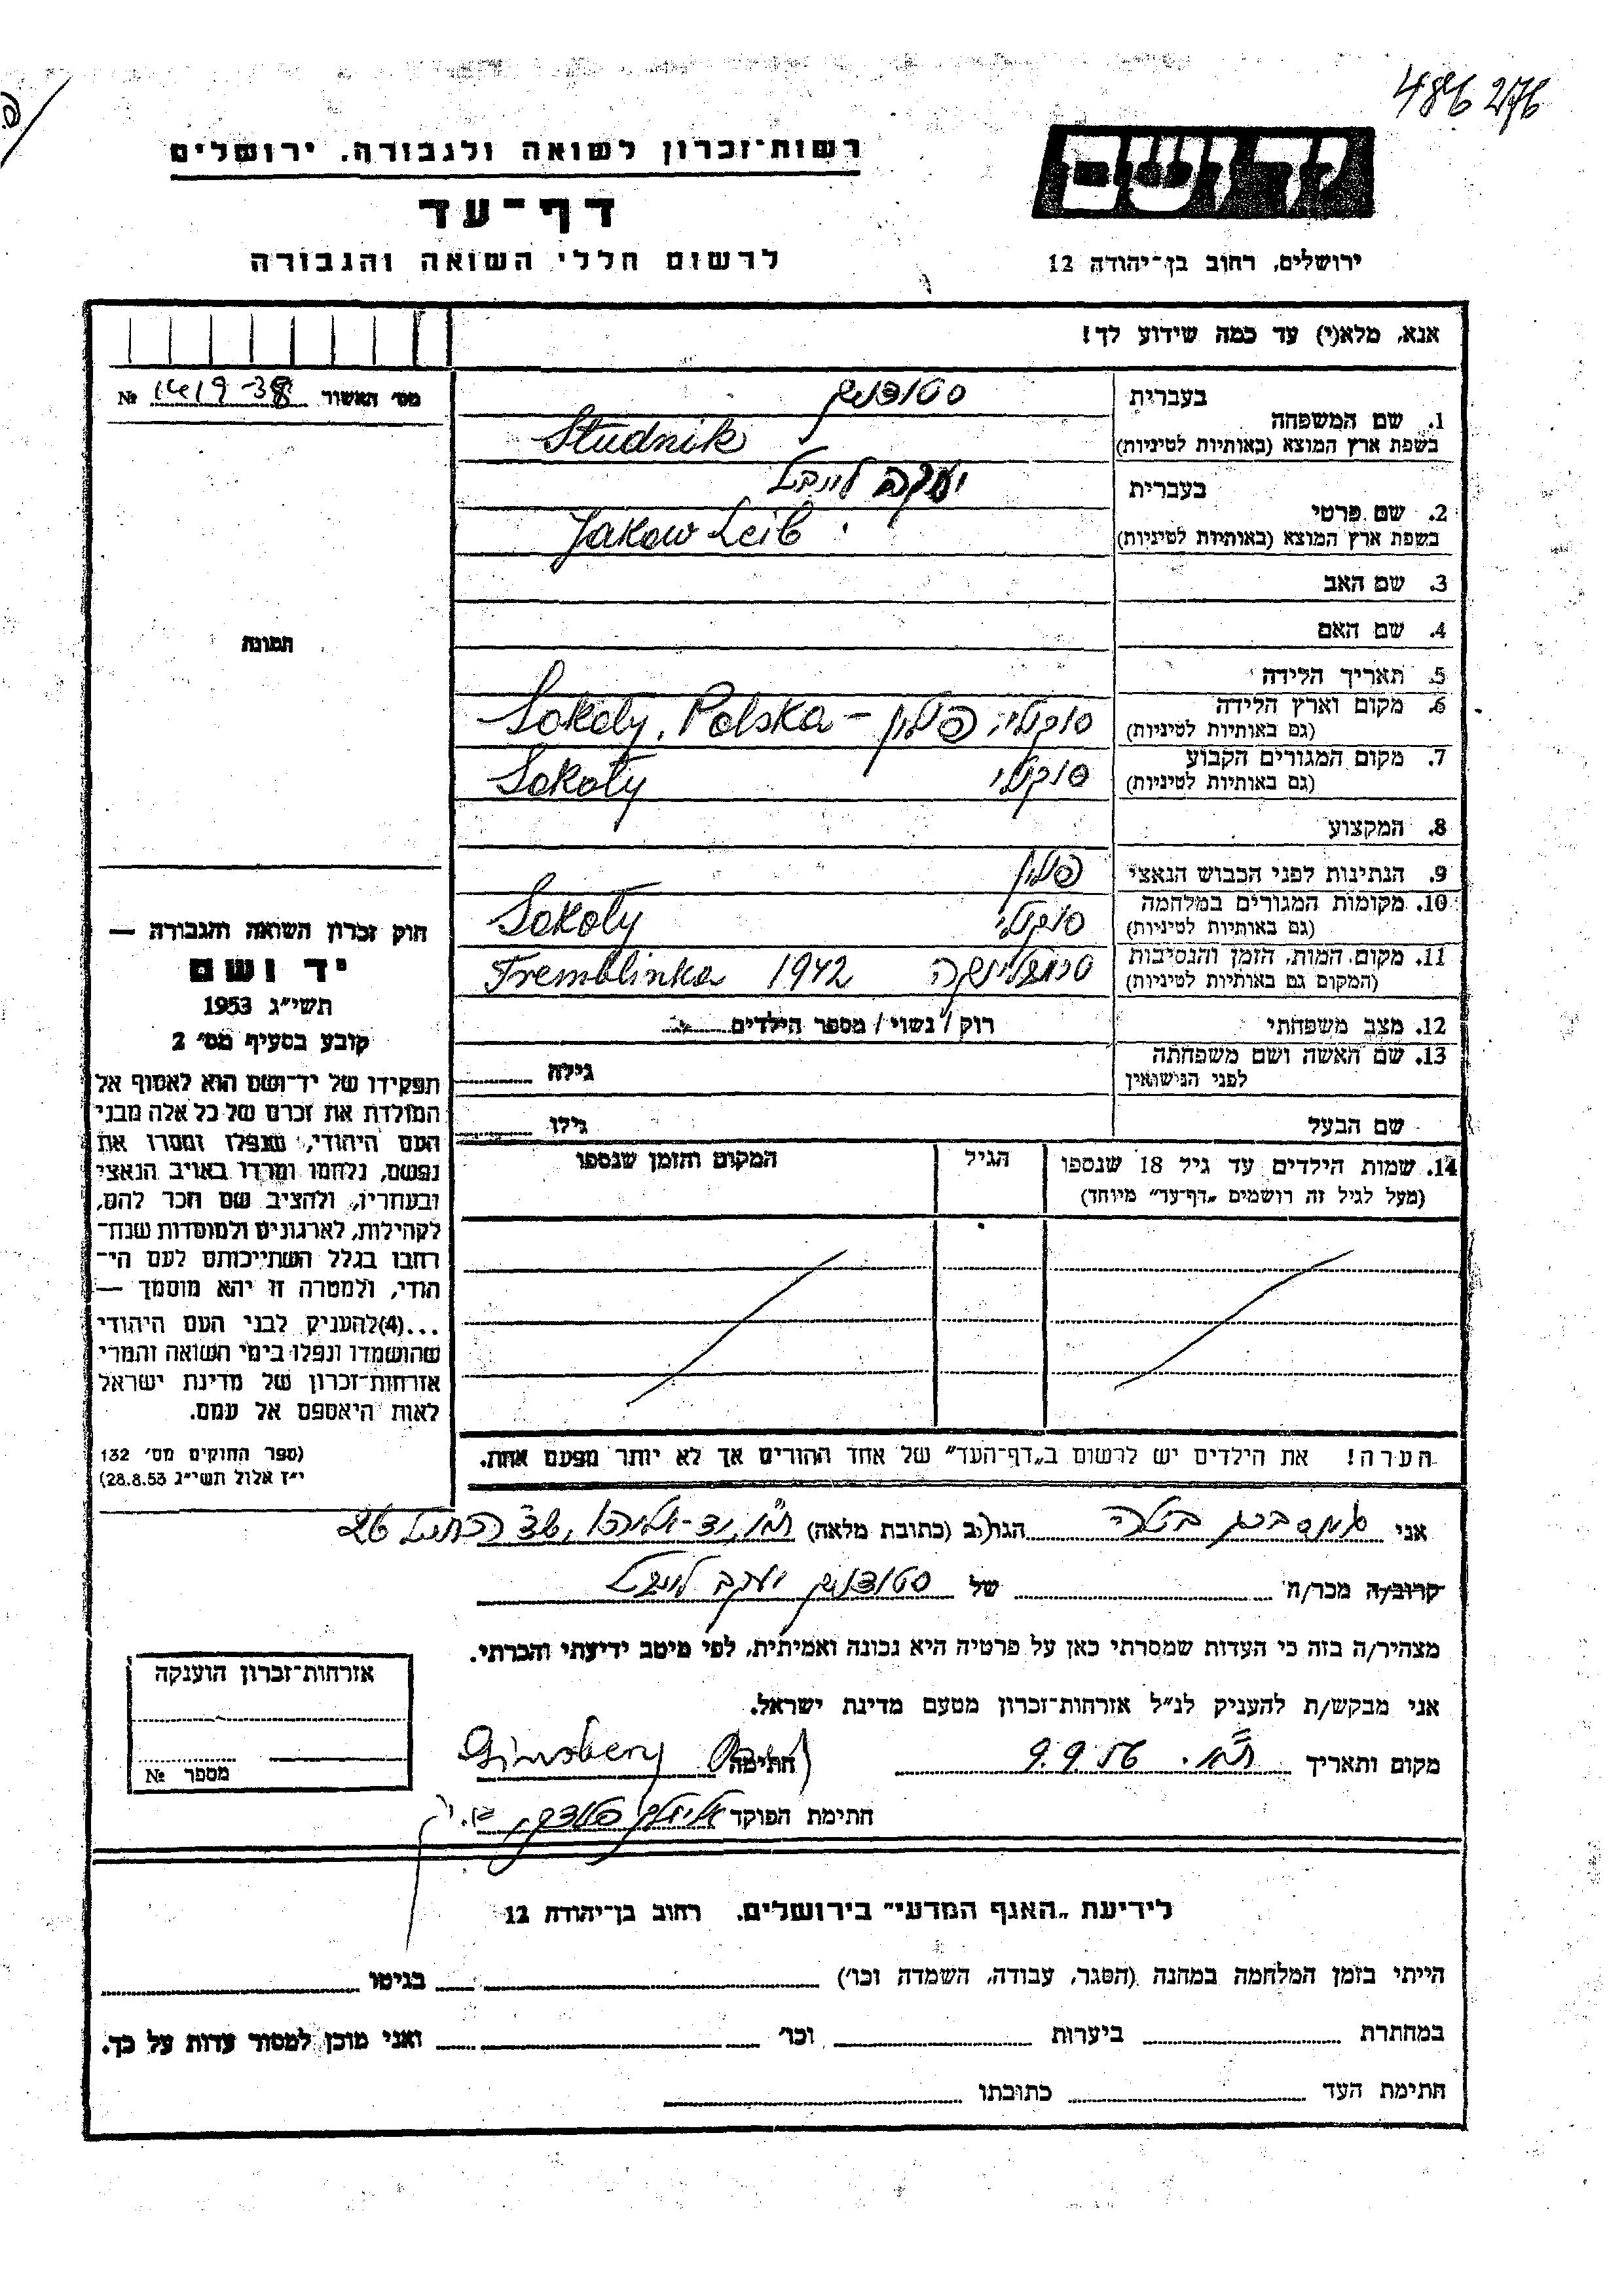 486276
רשות־זכרון לשואה ולגבורה, ירושלים
דף־עד
לרשום חללי השואה והגבורה
יד ושם
ירושלים, רחוב בן־יהודה 12
אנא, מלא(י) עד כמה שידוע לך!
מס׳ האשור № 1419-38
תמונה
1. שם המשפחה
בעברית סטודניק
בשפת ארץ המוצא (באותיות לטיניות) Studnik
2. שם פרטי
בעברית יעקב לייבל
בשפת ארץ המוצא (באותיות לטיניות) Jakow Leib
3. שם האב
4. שם האם
5. תאריך הלידה
6. מקום וארץ הלידה סוקולי, פולין - Sokoly, Polska
(גם באותיות לטיניות)
7. מקום המגורים הקבוע סוקולי Sokoły
(גם באותיות לטיניות)
8. המקצוע
9. הנתינות לפני הכבוש הנאצי פולין
10. מקומות המגורים במלחמה סוקולי Sokoły
(גם באותיות לטיניות)
11. מקום המות, הזמן והנסיבות טרמבלינקה 1942 Tremblinka
(המקום גם באותיות לטיניות)
12. מצב משפחתי רוק / נשוי / מספר הילדים
13. שם האשה ושם משפחתה גילה
לפני הנישואין
שם הבעל גילו
14. שמות הילדים עד גיל 18 שנספו הגיל המקום והזמן שנספו
(מעל לגיל זה רושמים „דף־עד״ מיוחד)
הערה! את הילדים יש לרשום ב„דף־העד״ של אחד ההורים אך לא יותר מפעם אחת.
חוק זכרון השואה והגבורה —
יד ושם
תשי״ג 1953
קובע בסעיף מס׳ 2
תפקידו של יד־ושם הוא לאסוף אל
המולדת את זכרם של כל אלה מבני
העם היהודי, שנפלו ומסרו את
נפשם, נלחמו ומרדו באויב הנאצי
ובעוזריו, ולהציב שם וזכר להם,
לקהילות, לארגונים ולמוסדות שנח־
רבו בגלל השתייכותם לעם הי־
הודי, ולמטרה זו יהא מוסמך —
...(4)להעניק לבני העם היהודי
שהושמדו ונפלו בימי השואה והמרי
אזרחות־זכרון של מדינת ישראל
לאות היאספם אל עמם.
(ספר החוקים מס׳ 132
י״ז אלול תשי״ג 28.8.53)
אני הגר/ה ב (כתובת מלאה) ת״א, יד-אליהו, 26
קרוב/ה מכר/ה של סטודניק יעקב לייבל
מצהיר/ה בזה כי העדות שמסרתי כאן על פרטיה היא נכונה ואמיתית, לפי מיטב ידיעתי והכרתי.
אני מבקש/ת להעניק לנ״ל אזרחות־זכרון מטעם מדינת ישראל.
מקום ותאריך ת״א. 9.9.56 חתימה Ginsberg
חתימת הפוקד
אזרחות־זכרון הוענקה
מספר №
לידיעת „האגף המדעי״ בירושלים, רחוב בן־יהודה 12
הייתי בזמן המלחמה במחנה (הסגר, עבודה, השמדה וכו׳) בגיטו
במחתרת ביערות וכו׳ ואני מוכן למסור עדות על כך.
חתימת העד כתובתו